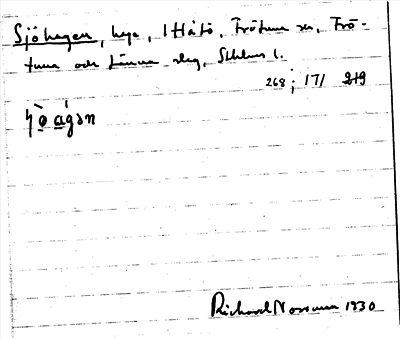 Sjöhagen, hage, 1 Håtö, Frötuna sn, Frö-
tuna och Länna slg, Sthlms l.
268; 171 219
Richard Norman 1930